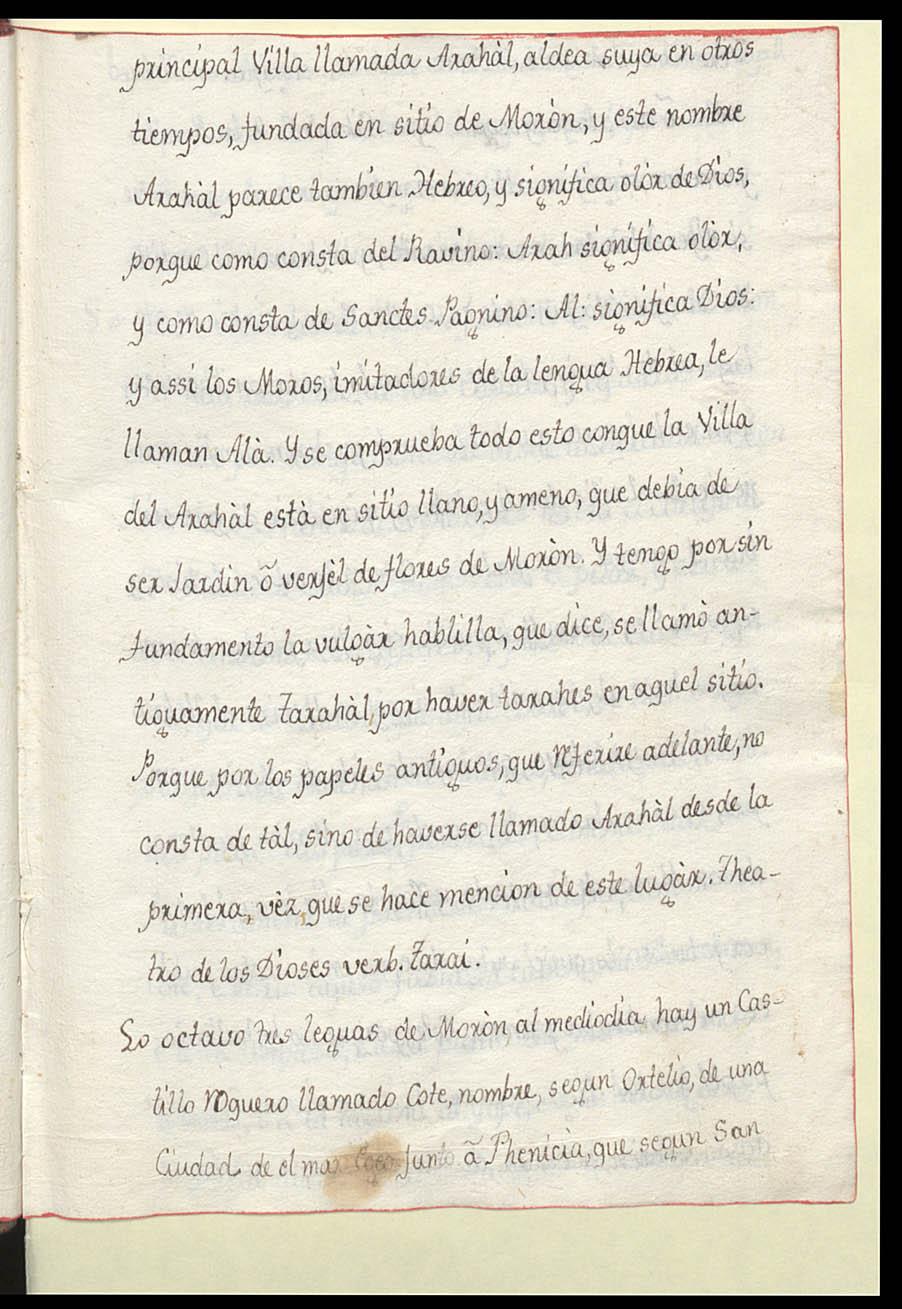 principal Villa llamada Arahàl, aldea suya en otros
tiempos, fundada en sitio de Moròn, y este nombre
Arahàl parece tambien Hebreo, y significa olòr de Dios,
porque como consta del Ravino: Arah significa olòr,
y como consta de Sanctes Pagnino: Al: significa Dios:
y assi los Moros, imitadores de la lengua Hebrea, le
llaman Alà. Y se comprueba todo esto conque la Villa
del Arahàl està en sitio llano, y ameno, que debia de
ser Jardin õ verjèl de flores de Moròn. Y tengo por sin
fundamento la vulgàr hablilla, que dice, se llamò an-
tiguamente Tarahàl, por haver tarahes en aquel sitio.
Porque por los papeles antiguos, que referire adelante, no
consta de tàl, sino de haverse llamado Arahàl desde la
primera, vèz, que se hace mencion de este lugàr. Thea-
tro de los Dioses verb. Tarai.
Lo octavo tres leguas de Moròn, al mediodia, hay un Cas-
tillo Roquero llamado Cote, nombre, segun Ortelio, de una
Ciudad de el mar Egeo Junto ã Phenicia, que segun San